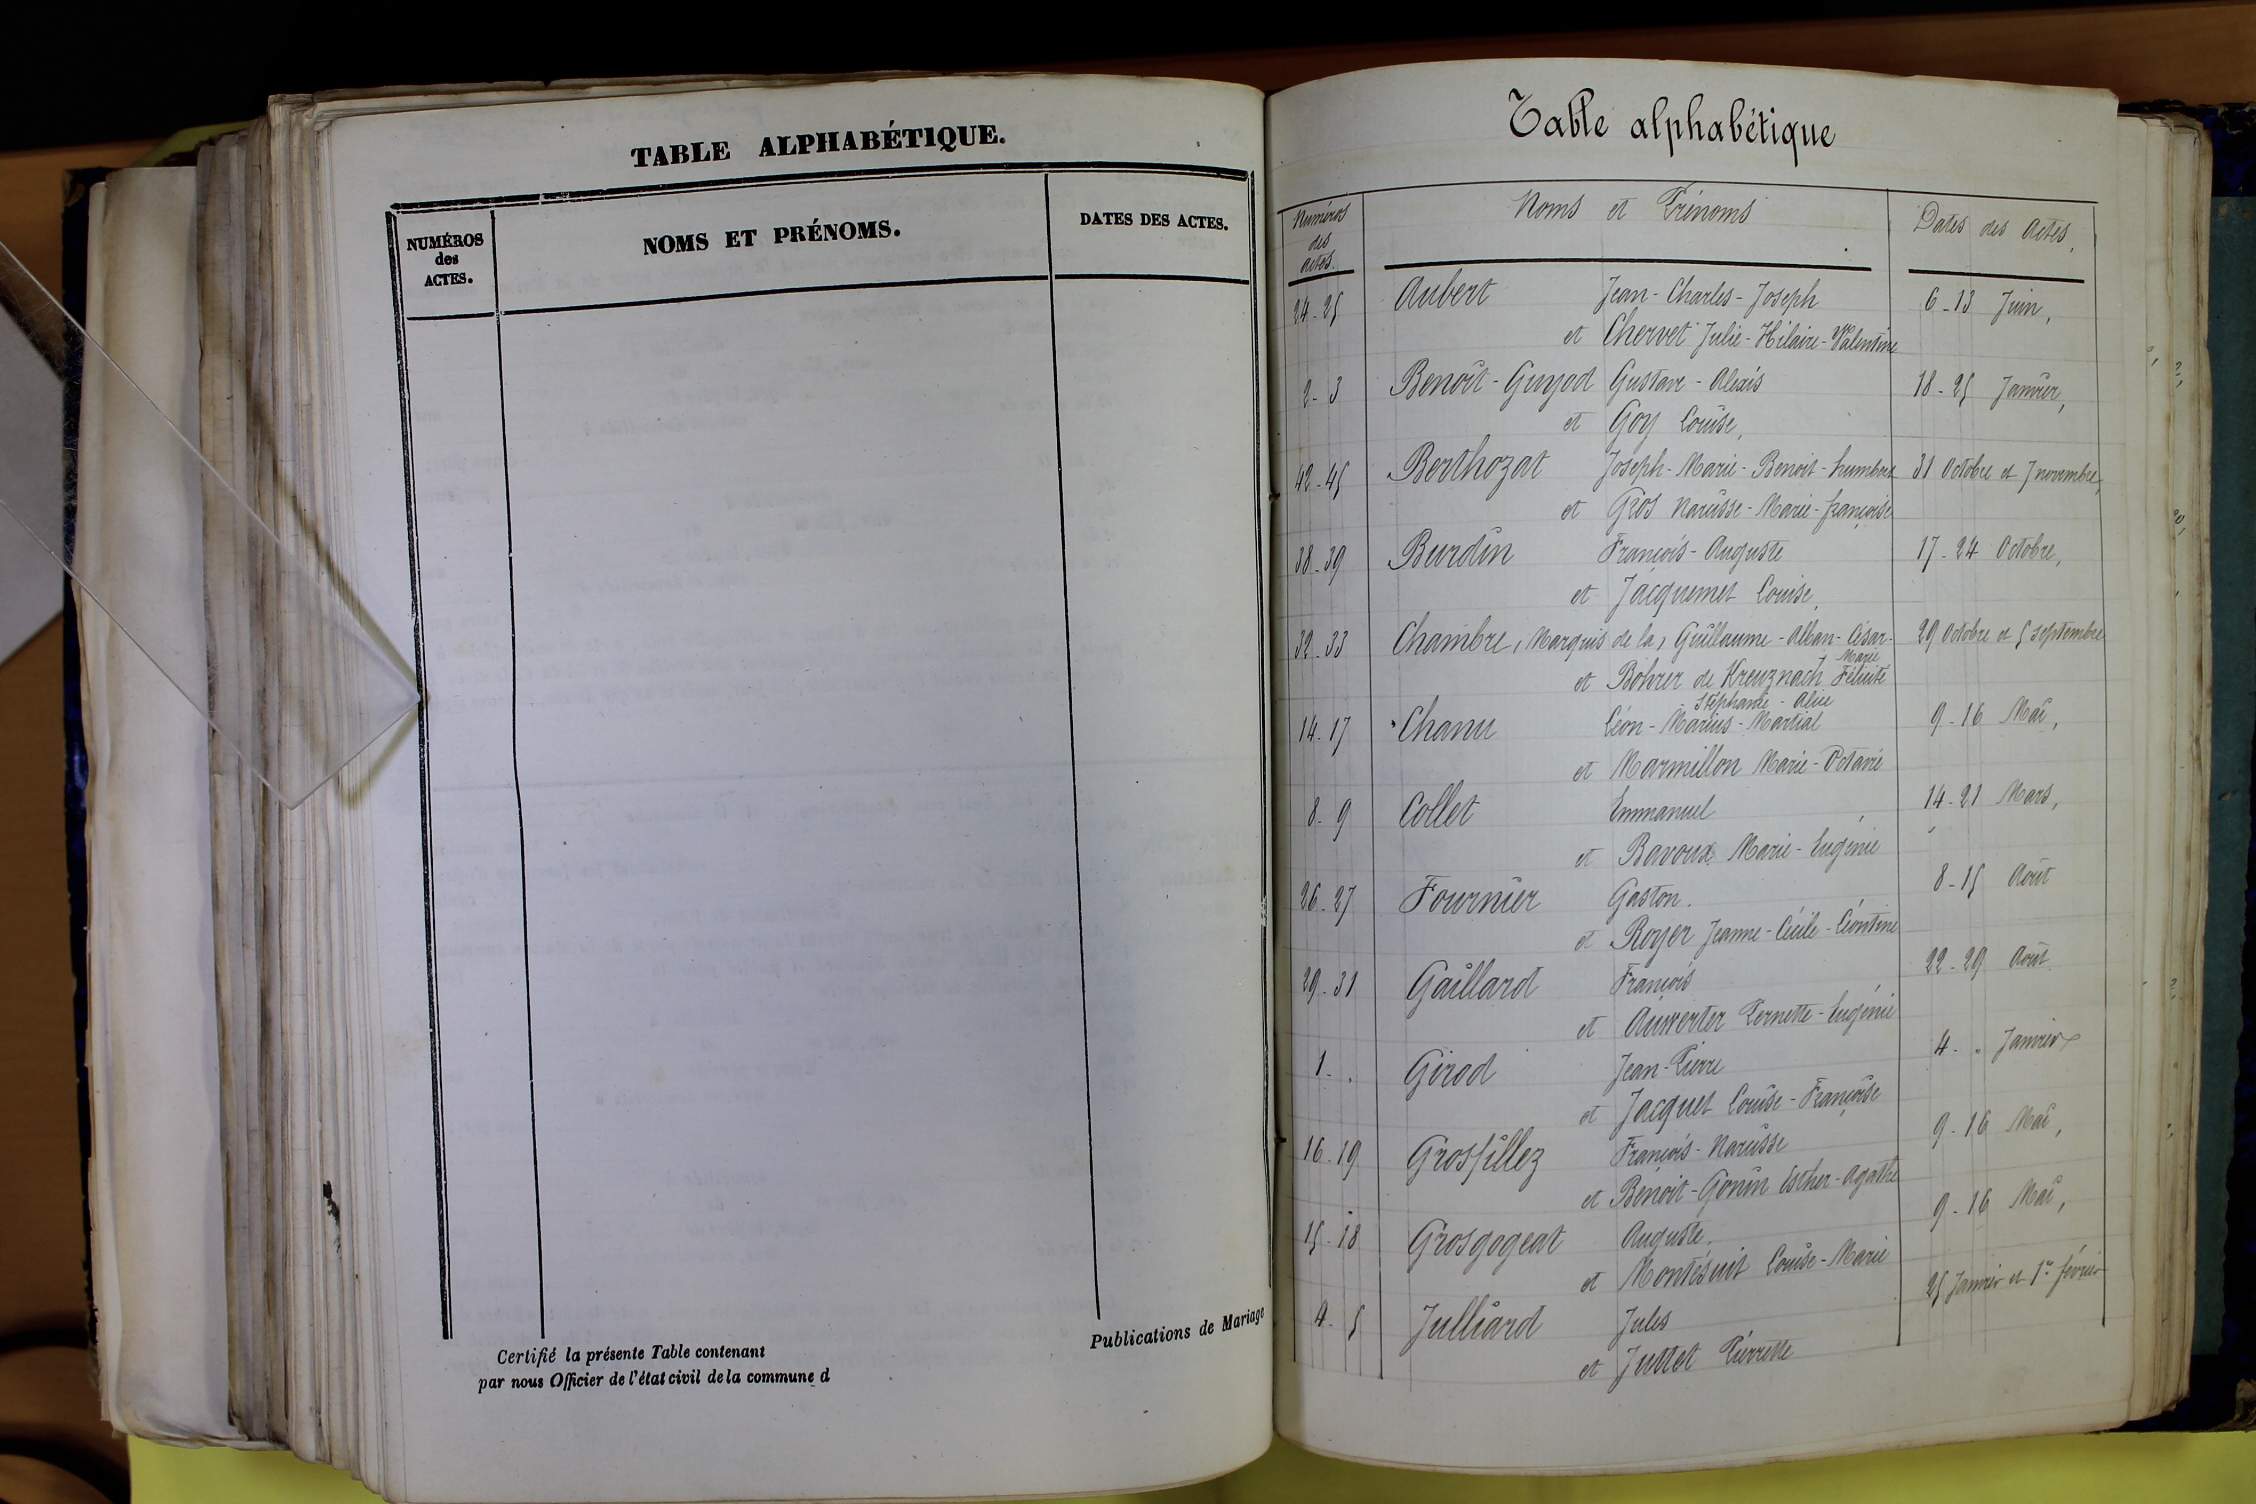 TABLE ALPHABÉTIQUE.
NUMÉROS
des
ACTES.
NOMS ET PRÉNOMS.
DATES DES ACTES.
Certifié la présente Table contenant
par nous Officier de l'état civil de la commune d
Publications de Mariage
Table alphabétique
Numéros
des
actes.
Noms et Prénoms
Dates des Actes,
24-25 Aubert Jean-Charles-Joseph 6-13 Juin,
et Chervet Julie-Hilaire-Valentine
2-3 Benoît-Guyod Gustave-Alexis 18-25 Janvier,
et Goy Louise,
42-45 Berthozat Joseph-Marie-Benoit-humbert 31 Octobre et 7 novembre,
et Gros Narcisse-Marie-françoise
38-39 Burdin François-Auguste 17-24 Octobre,
et Jacquemet Louise,
32-33 Chambre, Marquis de la, Guillaume-Alban-César- 29 Octobre et 5 septembre
Marie
et Bohrer de Kreuznach Félicité
Stéphanie-Alice
14-17 Chanu Léon-Marius-Martial 9-16 Mai,
et Marmillon Marie-Octavie
8-9 Collet Emmanuel 14-21 Mars,
et Bavoux Marie-Eugénie
26-27 Fournier Gaston. 8-15 Août
et Royer Jeanne-Cécile-Léontine
29-31 Gaillard François 22-29 Août
et Auwerter Pernette-Eugénie
1-. Girod Jean-Pierre 4-. Janvier
et Jacquet Louise-Françoise
16-19 Grosfillez François-Narcisse 9-16 Mai,
et Benoit-Gonin Esther-Agathe
15-18 Grosgogeat Auguste. 9-16 Mai,
et Montésuit Louise-Marie
4-5 Julliard Jules 25 Janvier et 1er février
et Juttet Pierrette